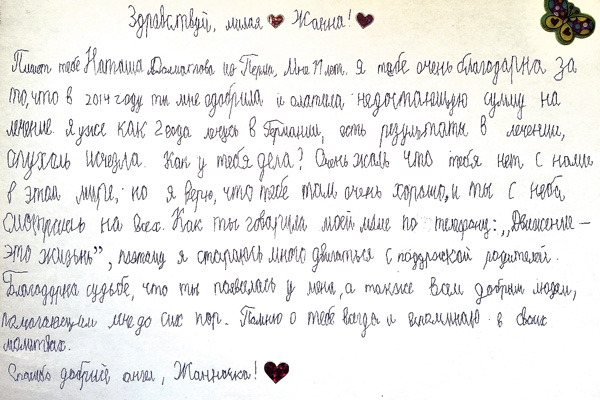 Здравствуй, милая Жанна!
Пишет тебе Наташа из Перми, Мне 11 лет. Я тебе очень благодарна за
то, что в 2014 году ты мне одобрила и оплатила недостающую сумму на
лечение. Я уже как 2 года лечусь в Германии, есть результаты в лечении,
опухоль исчезла. Как у тебя дела? Очень жаль что тебя нет с нами
в этом мире, но я верю, что тебе там очень хорошо, и ты с неба
смотришь на всех. Как ты говорила моей маме по телефону: „Движение –
это жизнь", поэтому я стараюсь много двигаться с поддержкой родителей.
Благодарна судьбе, что ты появилась у меня, а также всем добрым людям,
помогающим мне до сих пор. Помню о тебе всегда и вспоминаю в своих
молитвах.
Спасибо добрый ангел, Жанночка!